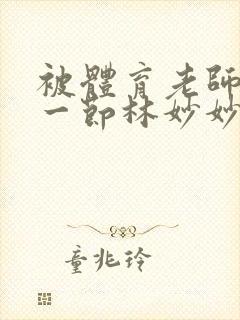 被體育老師
一節林妙妙
童兆玲